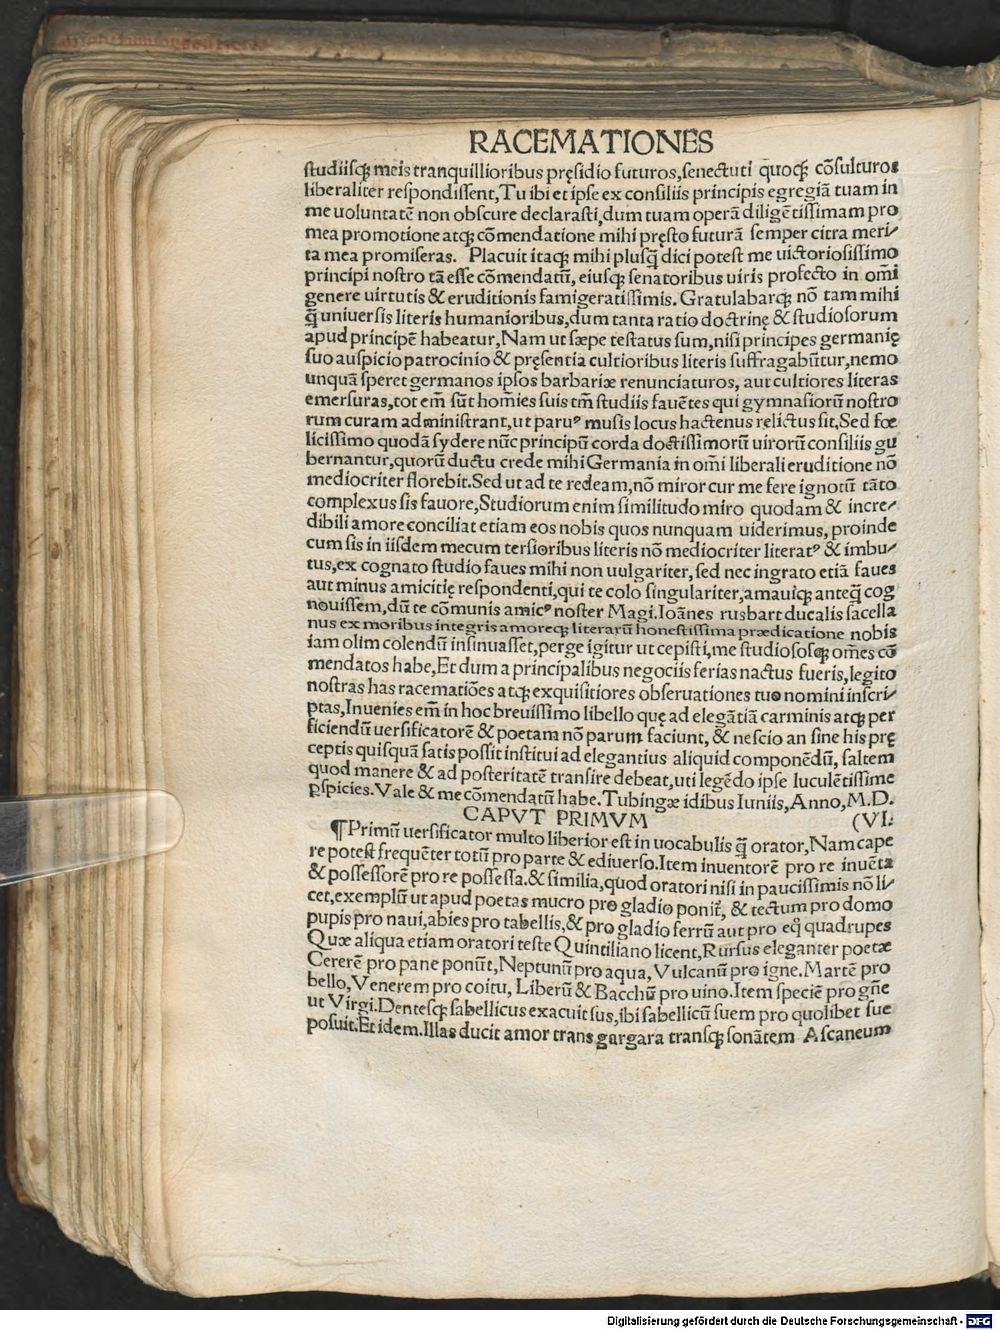 RACEMATIONES
studiisq; meis tranquillioribus pręsidio futuros, senectuti quoq; cōsulturos
liberaliter respondissent, Tu ibi et ipse ex consiliis principis egregiā tuam in
me uoluntatē non obscure declarasti, dum tuam operā diligētissimam pro
mea promotione atq; cōmendatione mihi pręsto futurā semper citra meri/
ta mea promiseras. Placuit itaq; mihi plusq̄ dici potest me uictoriosissimo
principi nostro tā esse cōmendatū, eiusq; senatoribus uiris profecto in om̄i
genere uirtutis & eruditionis famigeratissimis. Gratulabarq; nō tam mihi
q̄ uniuersis literis humanioribus, dum tanta ratio doctrinę & studiosorum
apud principē habeatur, Nam ut sæpe testatus sum, nisi principes germanię
suo auspicio patrocinio & pręsentia cultioribus literis suffragabūtur, nemo
unquā speret germanos ipsos barbariæ renunciaturos, aut cultiores literas
emersuras, tot em̄ sūt hom̄ies suis tm̄ studiis fauētes qui gymnasiorū nostro
rum curam administrant, ut paruꝰ musis locus hactenus relictus sit, Sed fœ
licissimo quodā sydere nūc principū corda doctissimorū uirorū consiliis gu
bernantur, quorū ductu crede mihi Germania in om̄i liberali eruditione nō
mediocriter florebit. Sed ut ad te redeam, nō miror cur me fere ignotū tāto
complexus sis fauore, Studiorum enim similitudo miro quodam & incre/
dibili amore conciliat etiam eos nobis quos nunquam uiderimus, proinde
cum sis in iisdem mecum tersioribus literis nō mediocriter literatꝰ & imbu/
tus, ex cognato studio faues mihi non uulgariter, sed nec ingrato etiā faues
aut minus amicitię respondenti, qui te colo singulariter, amauiq; anteq̄ cog
nouissem, dū te cōmunis amicꝰ noster Magi. Ioānes rusbart ducalis sacella
nus ex moribus integris amoreq; literarū honestissima prædicatione nobis
iam olim colendū insinuasset, perge igitur ut cepisti, me studiososq; om̄es cō
mendatos habe, Et dum a principalibus negociis ferias nactus fueris, legito
nostras has racematiōes atq; exquisitiores obseruationes tuo nomini inscri/
ptas, Inuenies em̄ in hoc breuissimo libello quę ad elegātiā carminis atq; per
ficiendū uersificatorē & poetam nō parum faciunt, & nescio an sine his prę
ceptis quisquā satis possit institui ad elegantius aliquid componēdū, saltem
quod manere & ad posteritatē transire debeat, uti legēdo ipse luculētissime
ꝑspicies. Vale & me cōmendatū habe. Tubingæ idibus Iuniis, Anno, M.D.
CAPVT PRIMVM (VI.
¶Primū uersificator multo liberior est in uocabulis q̄ orator, Nam cape
re potest frequēter totū pro parte & ediuerso. Item inuentorē pro re inuēta
& possessorē pro re possessa. & similia, quod oratori nisi in paucissimis nō li/
cet, exemplū ut apud poetas mucro pro gladio ponit̄, & tectum pro domo
pupis pro naui, abies pro tabellis, & pro gladio ferrū aut pro eq̄ quadrupes
Quæ aliqua etiam oratori teste Quintiliano licent, Rursus eleganter poetæ
Cererē pro pane ponūt, Neptunū pro aqua, Vulcanū pro igne. Martē pro
bello, Venerem pro coitu, Liberū & Bacchū pro uino. Item speciē pro gn̄e
ut Virgi. Dentesq; sabellicus exacuit sus, ibi sabellicū suem pro quolibet sue
posuit. Et idem. Illas ducit amor trans gargara transq; sonātem Ascaneum
Digitalisierung gefördert durch die Deutsche Forschungsgemeinschaft - DFG